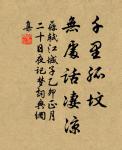 千里孤墳
無處話淒涼
蘇軾江城子乙卯正月
二十日夜記夢詞典網
喜